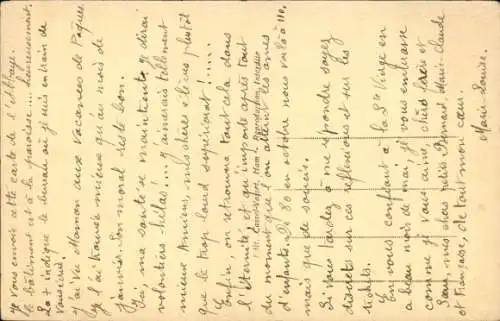 Je vous envoie cette carte de l'Abbaye.
le bâtiment est à la paroisse.... heureusement.
La + indique le bureau où je suis en train de
vous écrire.
J'ai vu Maman aux Vacances de Pâques
Je l'ai trouvée mieux qu'au mois de
Janvier. Son moral reste bon.
Ici, ma santé se maintient, je dirai
volontiers hélas!... j'aimerais tellement
mieux Amiens, mes chères élèves plutôt
que le trop lourd supériorat!....
Enfin, on retrouvera tout cela dans
l'éternité et qu'importe après tout
du moment que l'on atteint les âmes
d'enfants. De 80 en octobre nous voilà à 110,
mais que de soucis.
Si vous tardez à me répondre soyez
discrets sur ces réflexions et sur les
vichits.
En vous confiant à la Ste Vierge en
ce beau mois de mai, je vous embrasse
comme je vous aime, chers frère et
Sœur, mes chers petits Bernard, Marie-Claude
et Françoise, de tout mon cœur.
Marie-Louise.